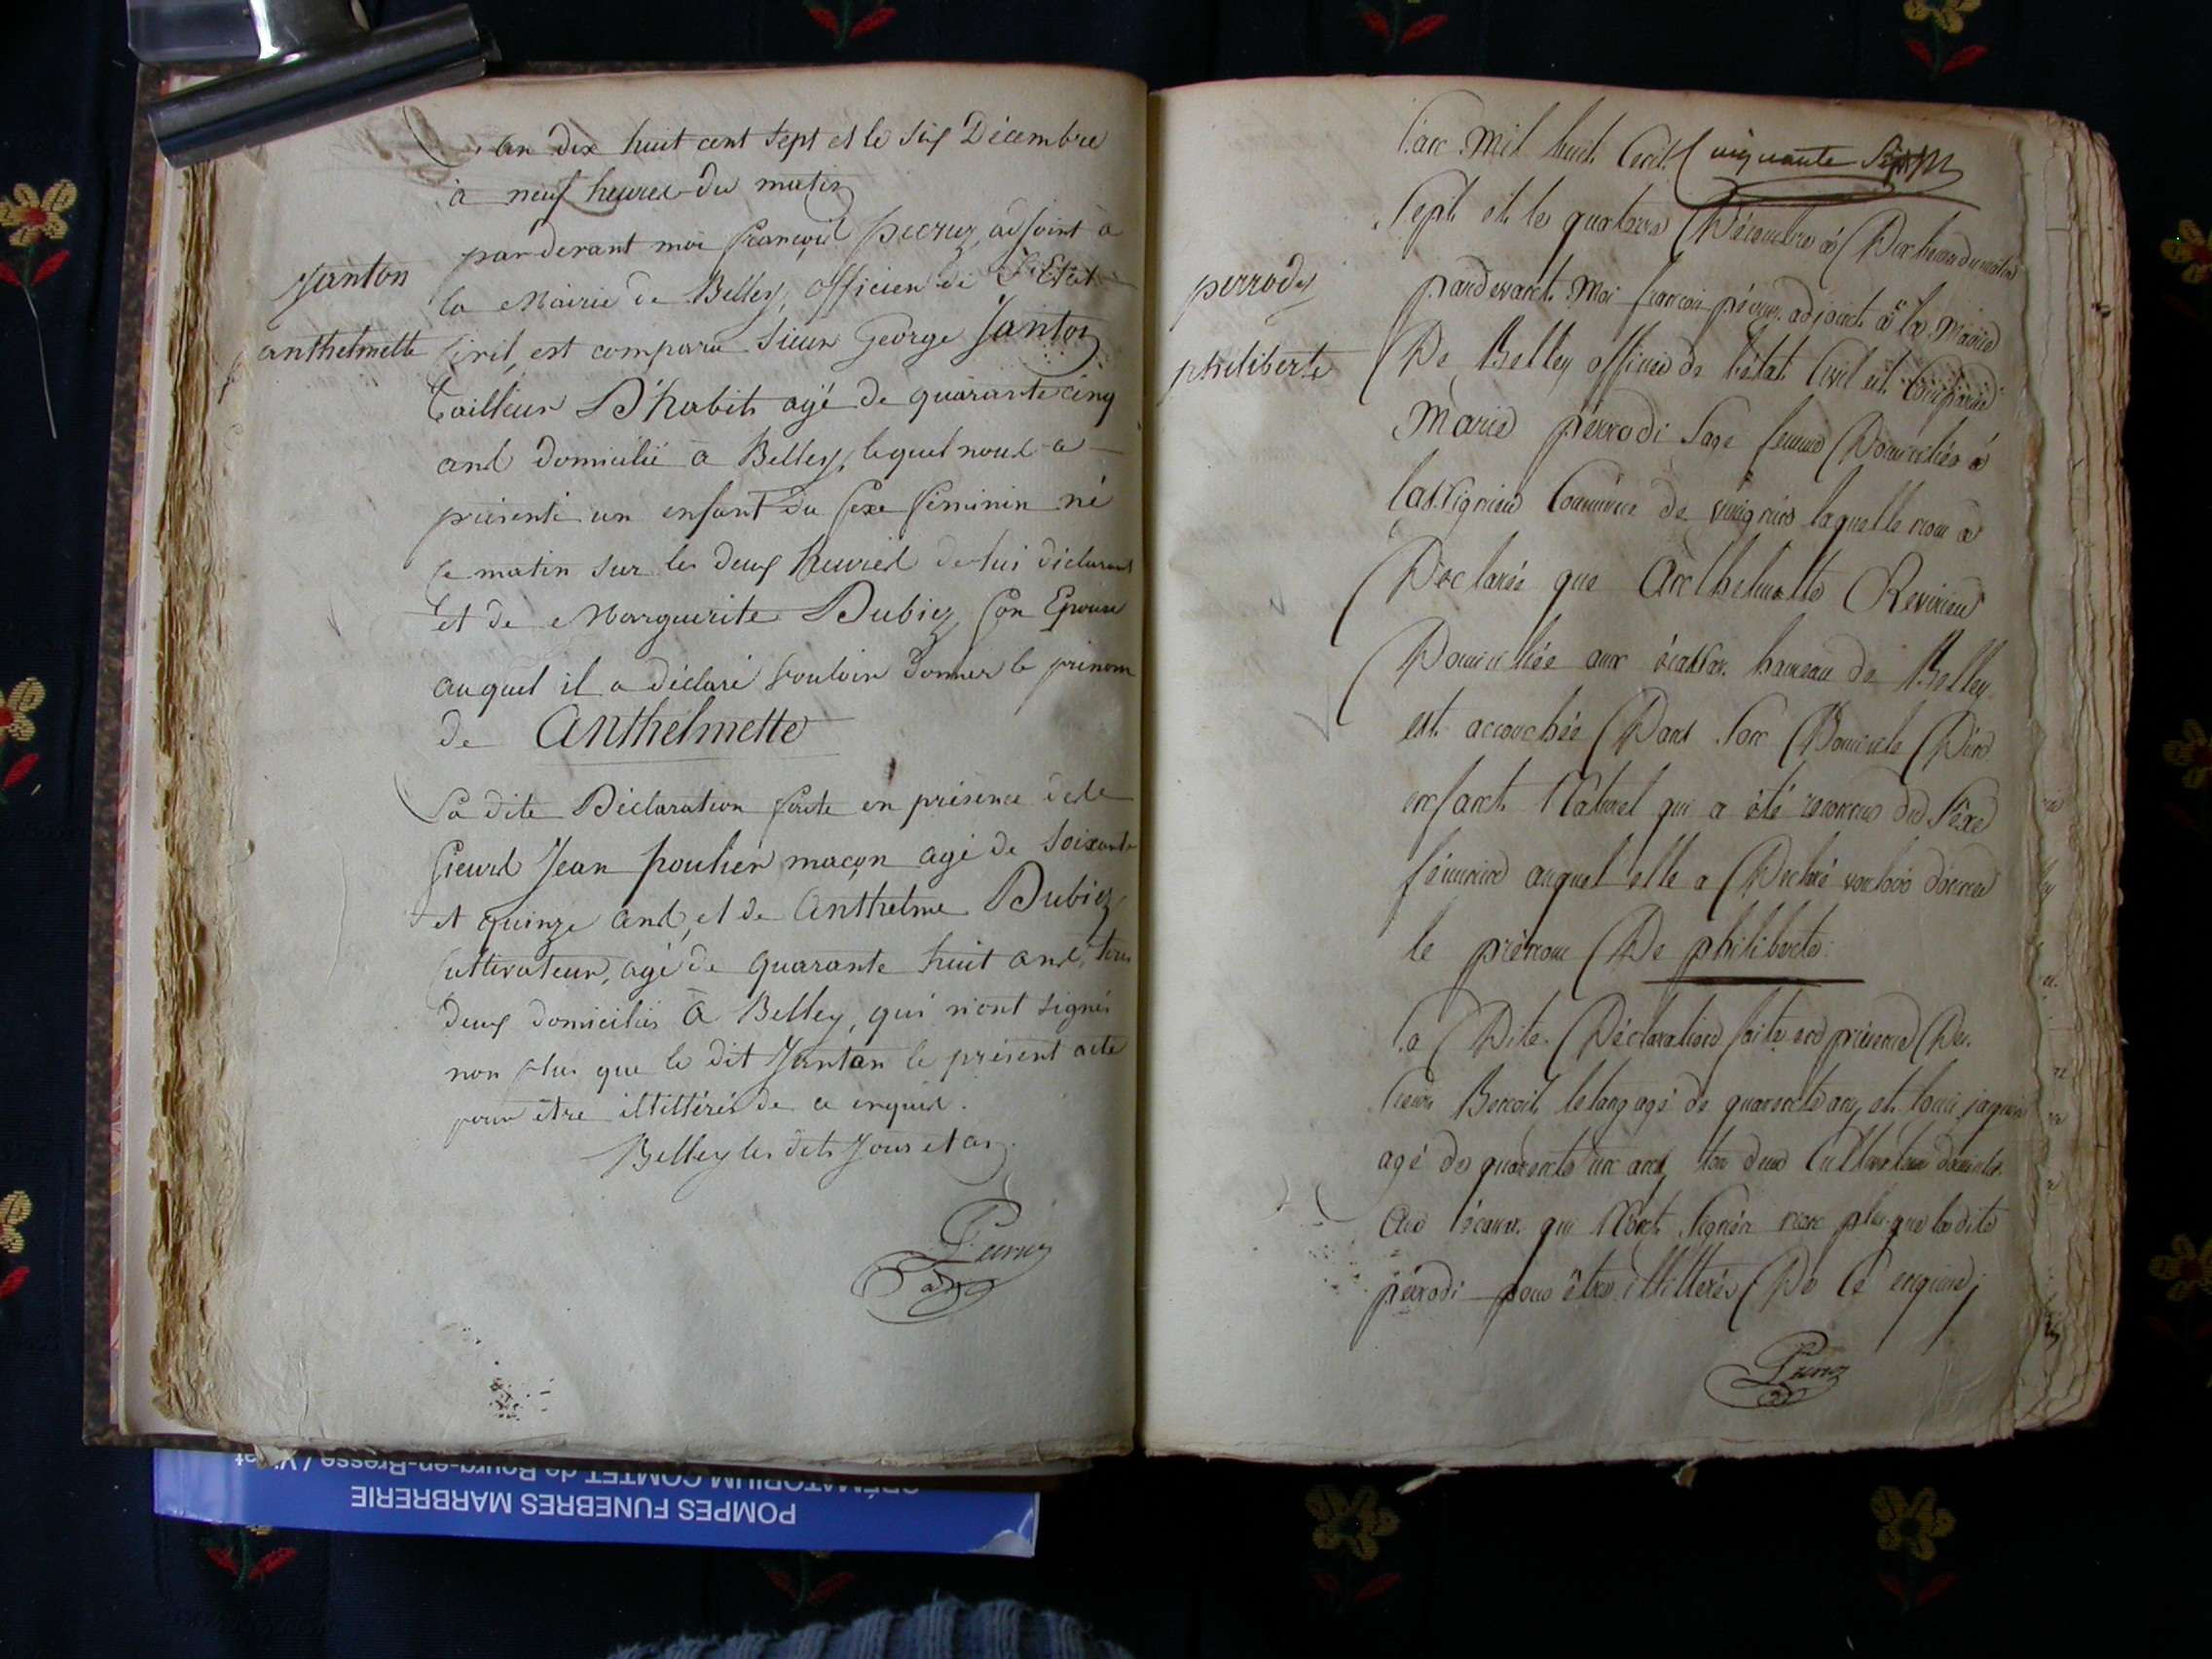 L'an dix huit cent sept et le six Décembre
à neuf heures du matin
pardevant moi françois pecruz, adjoint à
la Mairie de Belley, officier de L'Etat
Civil, est comparu Sieur George Janton
Tailleur D'habits agé de quarante cinq
ans domicilié à Belley, lequel nous a
présenté un enfant du sexe féminin né
ce matin sur les deux heures de lui déclarant
et de Marguerite Dubiez son Epouse
auquel il a déclaré vouloir donner le prénom
de Anthelmette
La dite Déclaration faite en présence de
sieurs Jean poulier maçon agé de soixante
et quinze ans, et de Anthelme Dubiez
cultivateur, agé de quarante huit ans, tous
deux domiciliés à Belley, qui n'ont signé
non plus que le dit Jantan le présent acte
pour être illittérés de ce enquis.
Belley les dits Jour et an.
Janton
anthelmette
L'an mil huit Cent Cinquante Sept
Sept et le quatorze Décembre à Dix heures du matin
pardevant Moi francois adjoint à la Mairie
De Belley officier de l'état Civil est Comparue
Marie pérrodi Sage femme Domiciliée à
Commune de laquelle nous à
Déclarée que Anthelmette
Domiciliée aux écassaz hameau de Belley
est accouchée Dans son Domicile D'un
enfant Naturel qui a été reconnu du Sexe
féminin auquel elle a Déclaré vouloir donner
le prénom De philiberte
La Dite Déclaration faite en présence Des
Sieurs Benoit letang agé de quarente ans et louis jaquin
agé de quarente un ans tous deux Cultivateurs domiciliés
Aux qui N'ont signés non plus que la dite
pérrodi pour être illittérés De Ce enquise
perrody
philiberte
POMPES FUNEBRES MARBRERIE
CRÉMATORIUM COMTET de Bourg-en-Bresse /